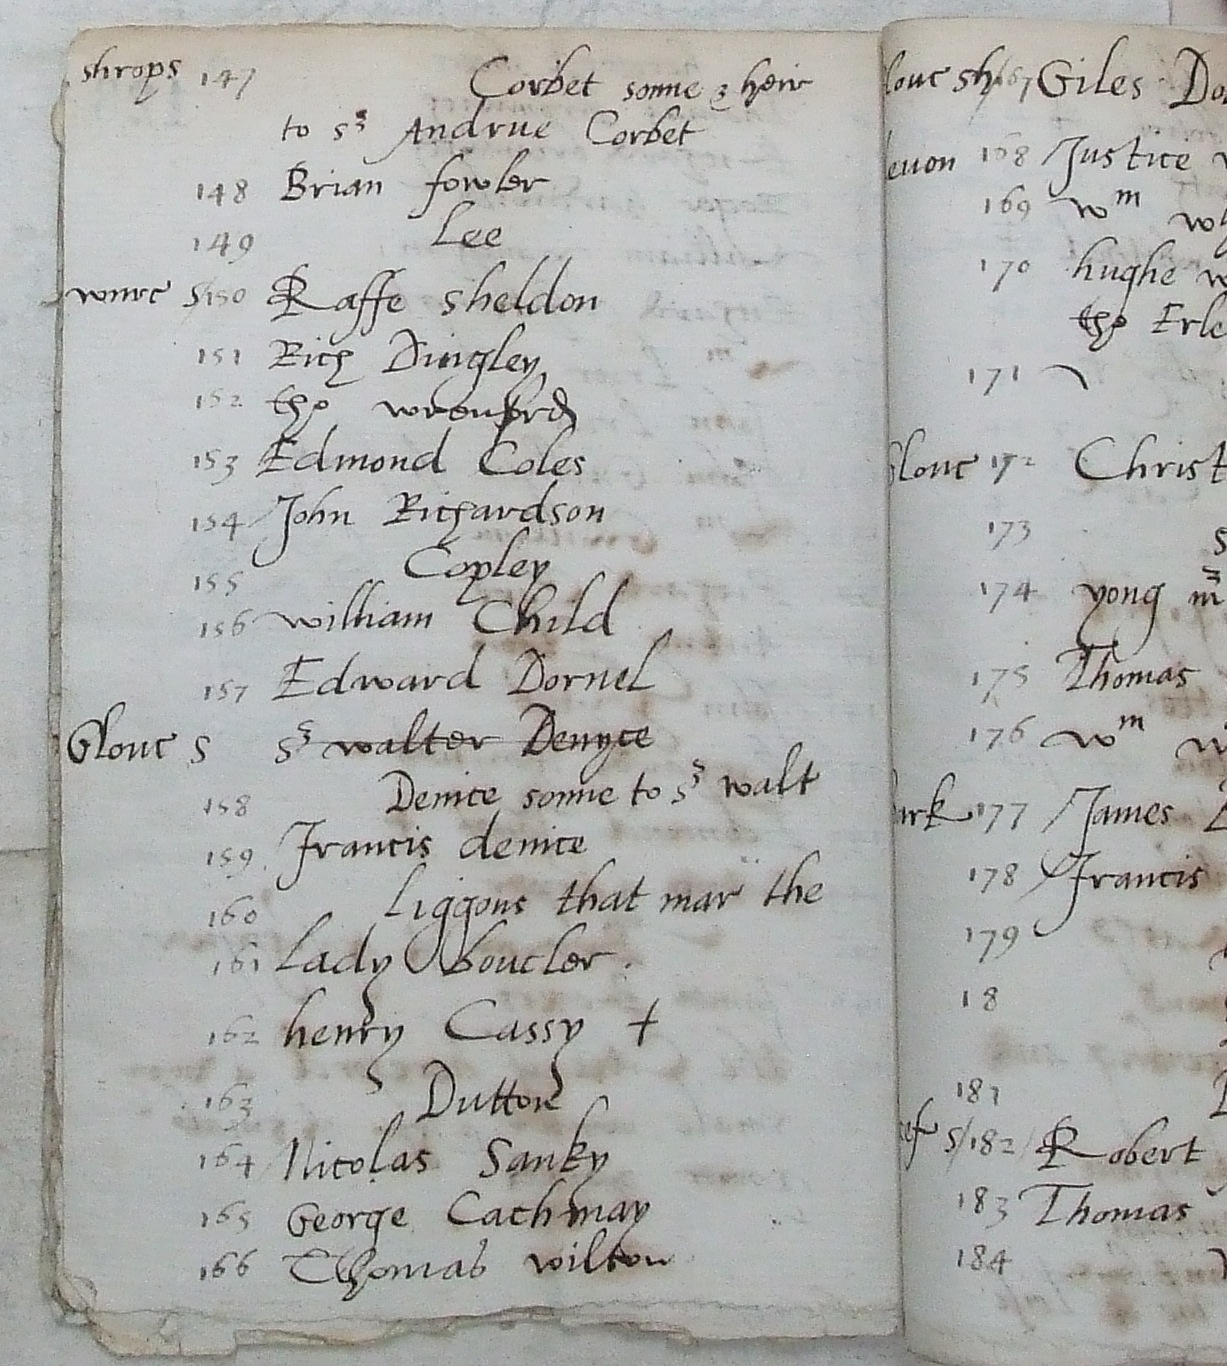 shrops 147 Corbet sonne & heir
to sr Andrue Corbet
148 Brian fowler
149 Lee
worc s/150 Raffe sheldon
151 Rich Dingley
152 tho wrenford
153 Edmond Coles
154 John Richardson
155 Copley
156 william Child
157 Edward Dornel
Glouc s sr walter Denyce
158 Denice sonne to sr walt
159 Francis denice
160 Liggons that mar the
161 Lady boucler
162 henry Cassy +
163 Dutton
164 Nicolas Sanky
165 George Cachmay
166 Thomas wilton
louc sh/167 Giles Do
euon 168 Justice
169 wm wh
170 hughe w
tho Erle
171
louc 172 Christ
173 s
174 yong m
175 Thomas
176 wm w
ark 177 James
178 Francis
179
18
181
ef s/182 Robert
183 Thomas
184